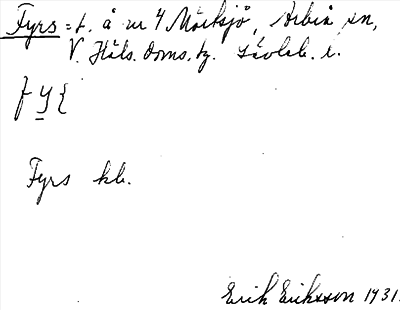 Fyrs = t. å ur 4 Mörksjö, Arbrå sn,
V. Häls. doms. bg. Gävleb. l.
f y {
Fyrs kb.
Erik Eriksson 1931.